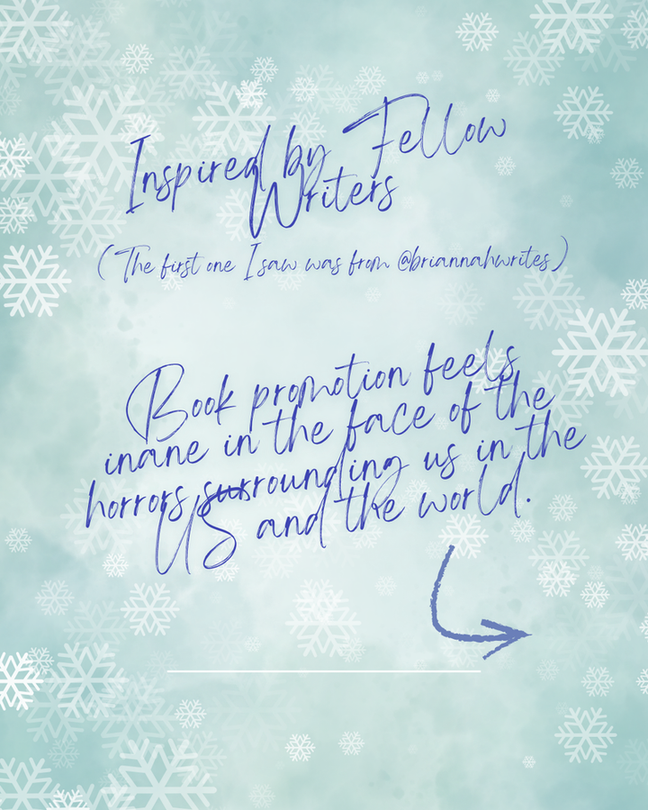 Inspired by Fellow
Writers
(The first one I saw was from @briannahwrites)
Book promotion feels
inane in the face of the
horrors surrounding us in the
US and the world.